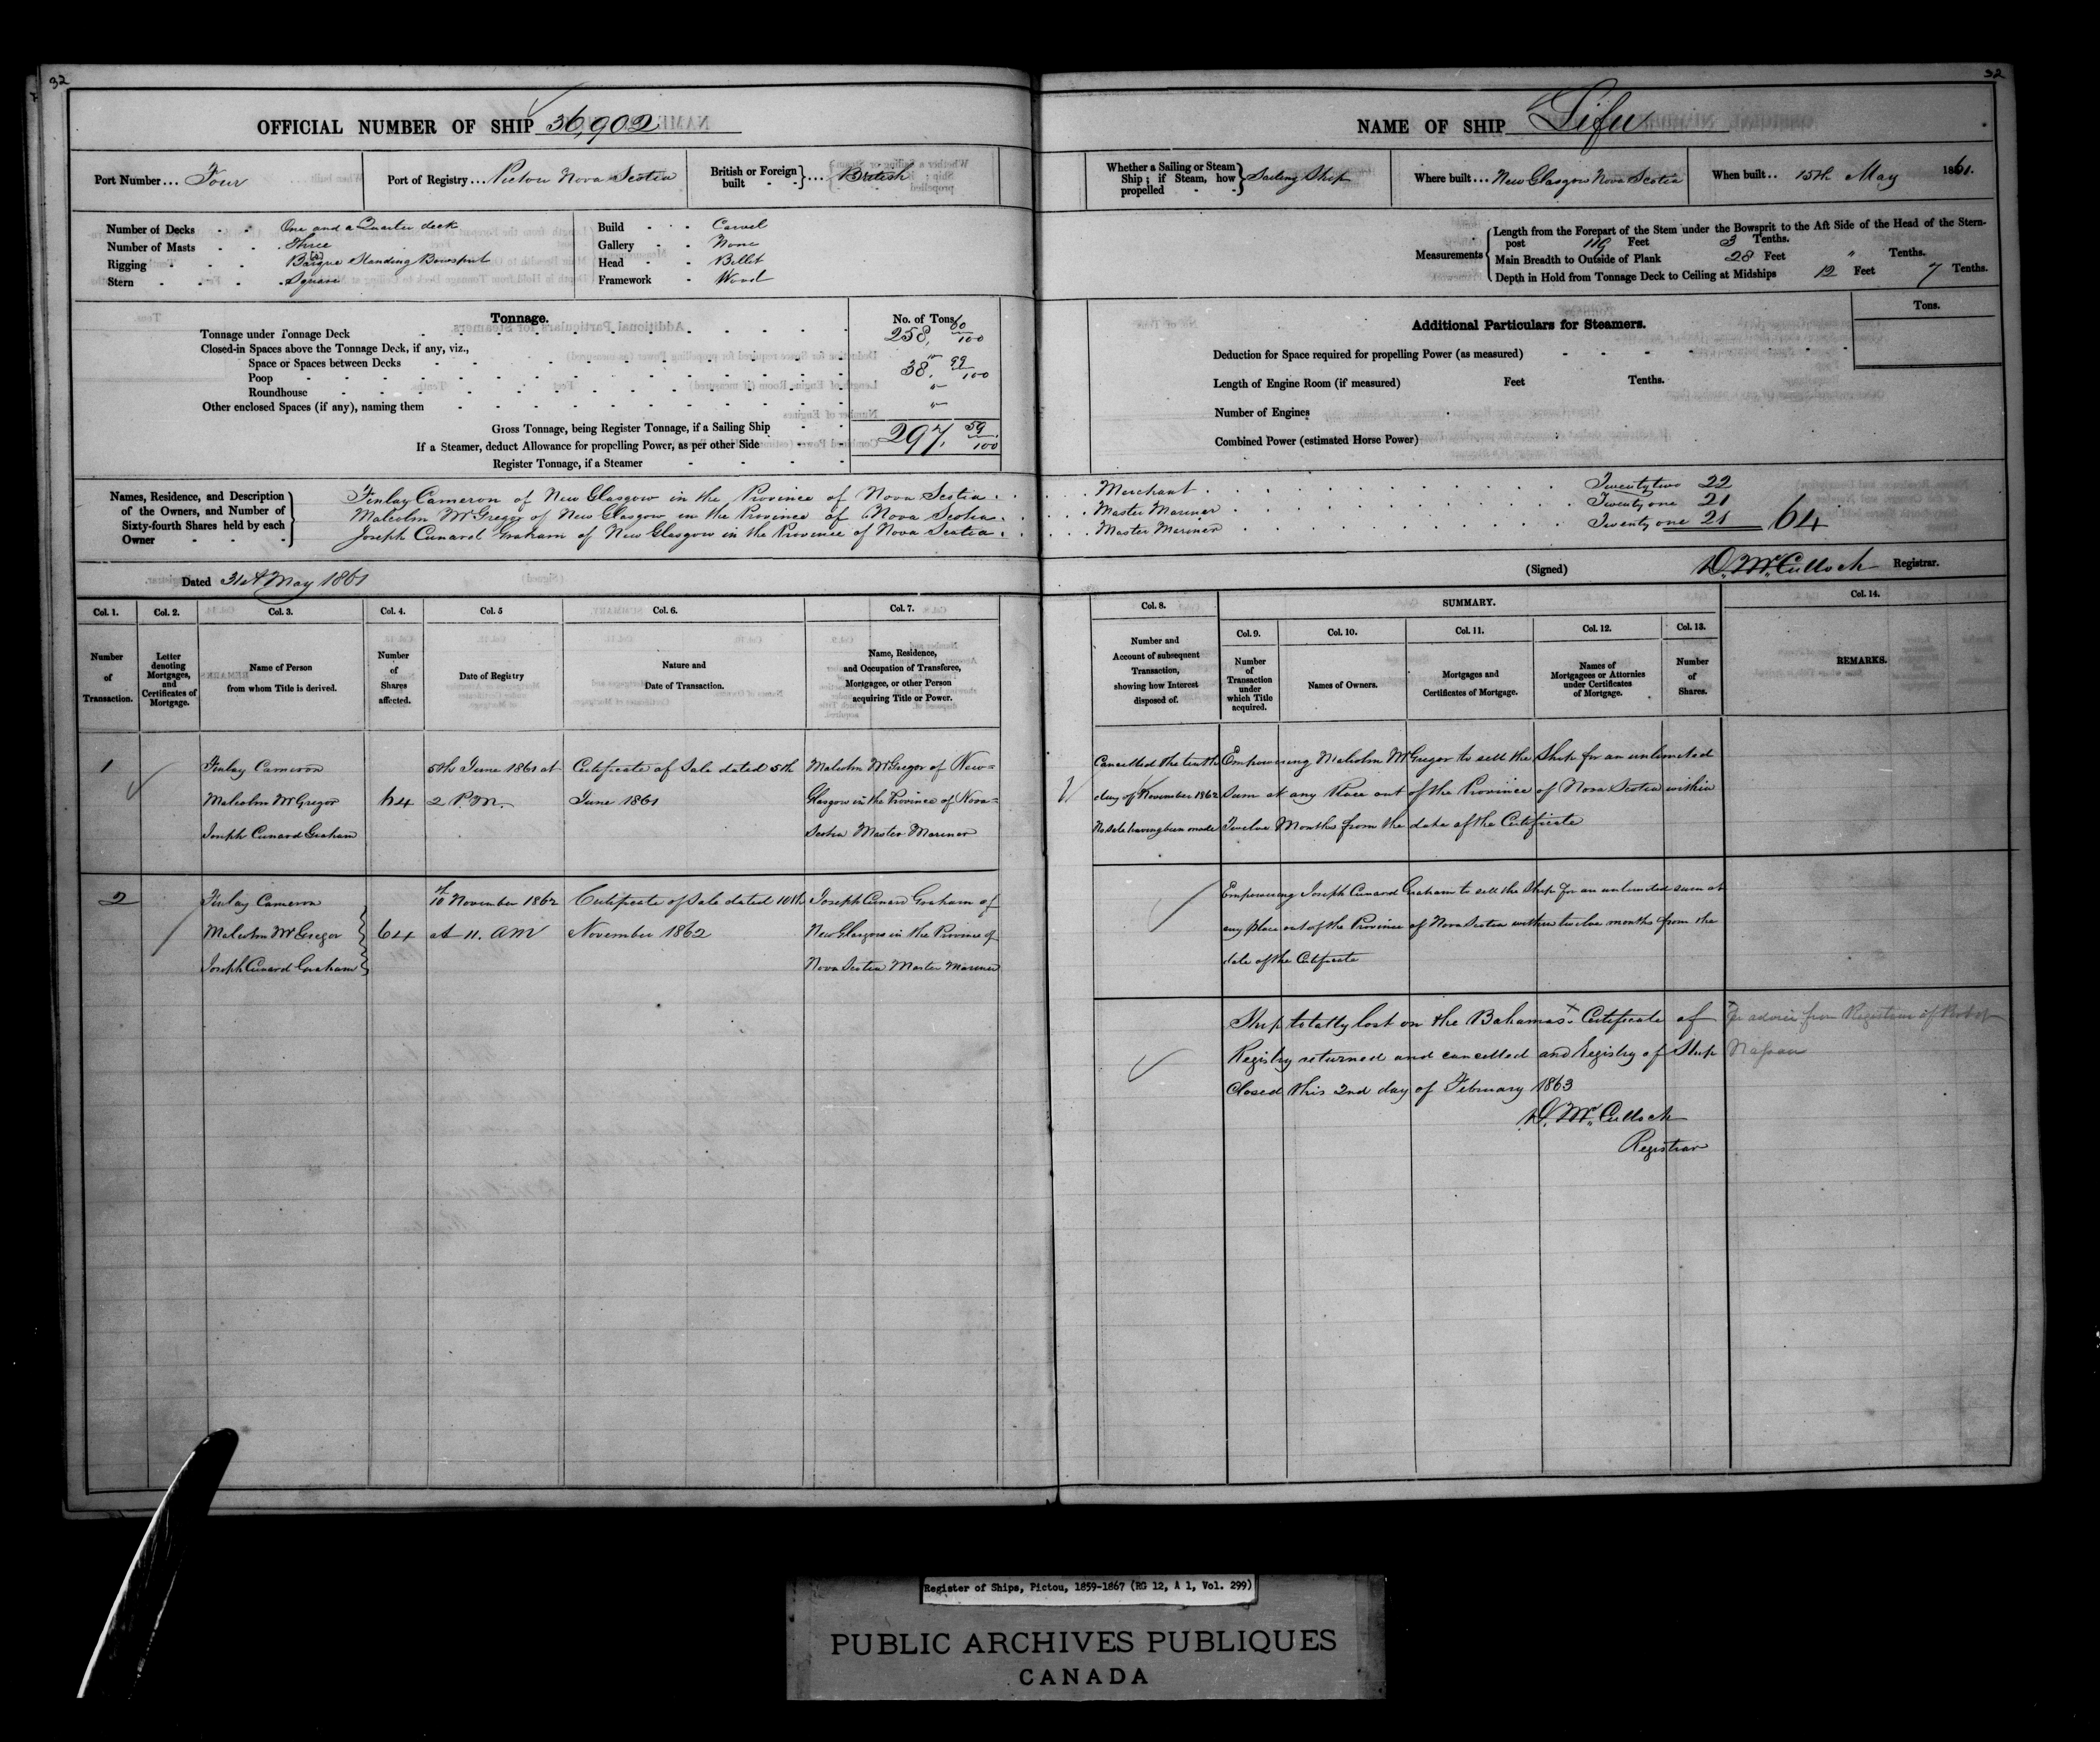 32
32
OFFICIAL NUMBER OF SHIP 36,902
NAME OF SHIP Lifu
Port Number ... Four
Port of Registry ... Pictou Nova Scotia
British or Foreign built } ... British
Whether a Sailing or Steam Ship ; if Steam, how propelled } Sailing Ship
Where built ... New Glasgow Nova Scotia
When built .. 15th May 1861.
Number of Decks One and a Quarter deck
Number of Masts Three
Rigging Barque Standing Bowsprit
Stern Square
Build Carvel
Gallery None
Head Billet
Framework Wood
Measurements
Length from the Forepart of the Stem under the Bowsprit to the Aft Side of the Head of the Stern-
post 119 Feet 3 Tenths.
Main Breadth to Outside of Plank 28 Feet " Tenths.
Depth in Hold from Tonnage Deck to Ceiling at Midships 12 Feet 7 Tenths.
Tonnage.
No. of Tons
Tonnage under Tonnage Deck 258, 60/100
Closed-in Spaces above the Tonnage Deck, if any, viz.,
Space or Spaces between Decks "
Poop 38. 99/100
Roundhouse "
Other enclosed Spaces (if any), naming them "
Gross Tonnage, being Register Tonnage, if a Sailing Ship 297, 59/100
If a Steamer, deduct Allowance for propelling Power, as per other Side
Register Tonnage, if a Steamer
Additional Particulars for Steamers.
Tons.
Deduction for Space required for propelling Power (as measured)
Length of Engine Room (if measured) Feet Tenths.
Number of Engines
Combined Power (estimated Horse Power)
Names, Residence, and Description
of the Owners, and Number of
Sixty-fourth Shares held by each
Owner
Finlay Cameron of New Glasgow in the Province of Nova Scotia . . . . Merchant . . . Twenty two 22
Malcolm McGregor of New Glasgow in the Province of Nova Scotia . . . . Master Mariner . . . Twenty one 21
Joseph Cunard Graham of New Glasgow in the Province of Nova Scotia . . . . Master Mariner . . . Twenty one 21 64
Dated 31st May 1861
(Signed) D. McCulloch Registrar.
Col. 1.
Number of Transaction.
Col. 2.
Letter denoting Mortgages, and Certificates of Mortgage.
Col. 3.
Name of Person from whom Title is derived.
Col. 4.
Number of Shares affected.
Col. 5
Date of Registry
Col. 6.
Nature and Date of Transaction.
Col. 7.
Name, Residence, and Occupation of Transferee, Mortgagee, or other Person acquiring Title or Power.
Col. 8.
Number and Account of subsequent Transaction, showing how Interest disposed of.
SUMMARY.
Col. 9.
Number of Transaction under which Title acquired.
Col. 10.
Names of Owners.
Col. 11.
Mortgages and Certificates of Mortgage.
Col. 12.
Names of Mortgagees or Attornies under Certificates of Mortgage.
Col. 13.
Number of Shares.
Col. 14.
REMARKS.
1
Finlay Cameron
Malcolm McGregor
Joseph Cunard Graham
64
5th June 1861 at
2 P.M.
Certificate of Sale dated 5th
June 1861
Malcolm McGregor of New=
Glasgow in the Province of Nova=
Scotia Master Mariner
Cancelled the tenth
day of November 1862
No sale having been made
Empowering Malcolm McGregor to sell the Ship for an unlimited
sum at any Place out of the Province of Nova Scotia within
Twelve Months from the date of the Certificate
2
Finlay Cameron
Malcolm McGregor
Joseph Cunard Graham
64
10th November 1862
at 11. AM
Certificate of Sale dated 10th
November 1862
Joseph Cunard Graham of
New Glasgow in the Province of
Nova Scotia Master Mariner
Empowering Joseph Cunard Graham to sell the Ship for an unlimited sum at
any place out of the Province of Nova Scotia within twelve months from the
date of the Certificate
Ship totally lost on the Bahamas x Certificate of
Registry returned and cancelled and Registry of Ship
Closed this 2nd day of February 1863
D. McCulloch
Registrar
x Per advice from Registrar of Port of
Nassau
Register of Ships, Pictou, 1859-1867 (RG 12, A 1, Vol. 299)
PUBLIC ARCHIVES PUBLIQUES
CANADA